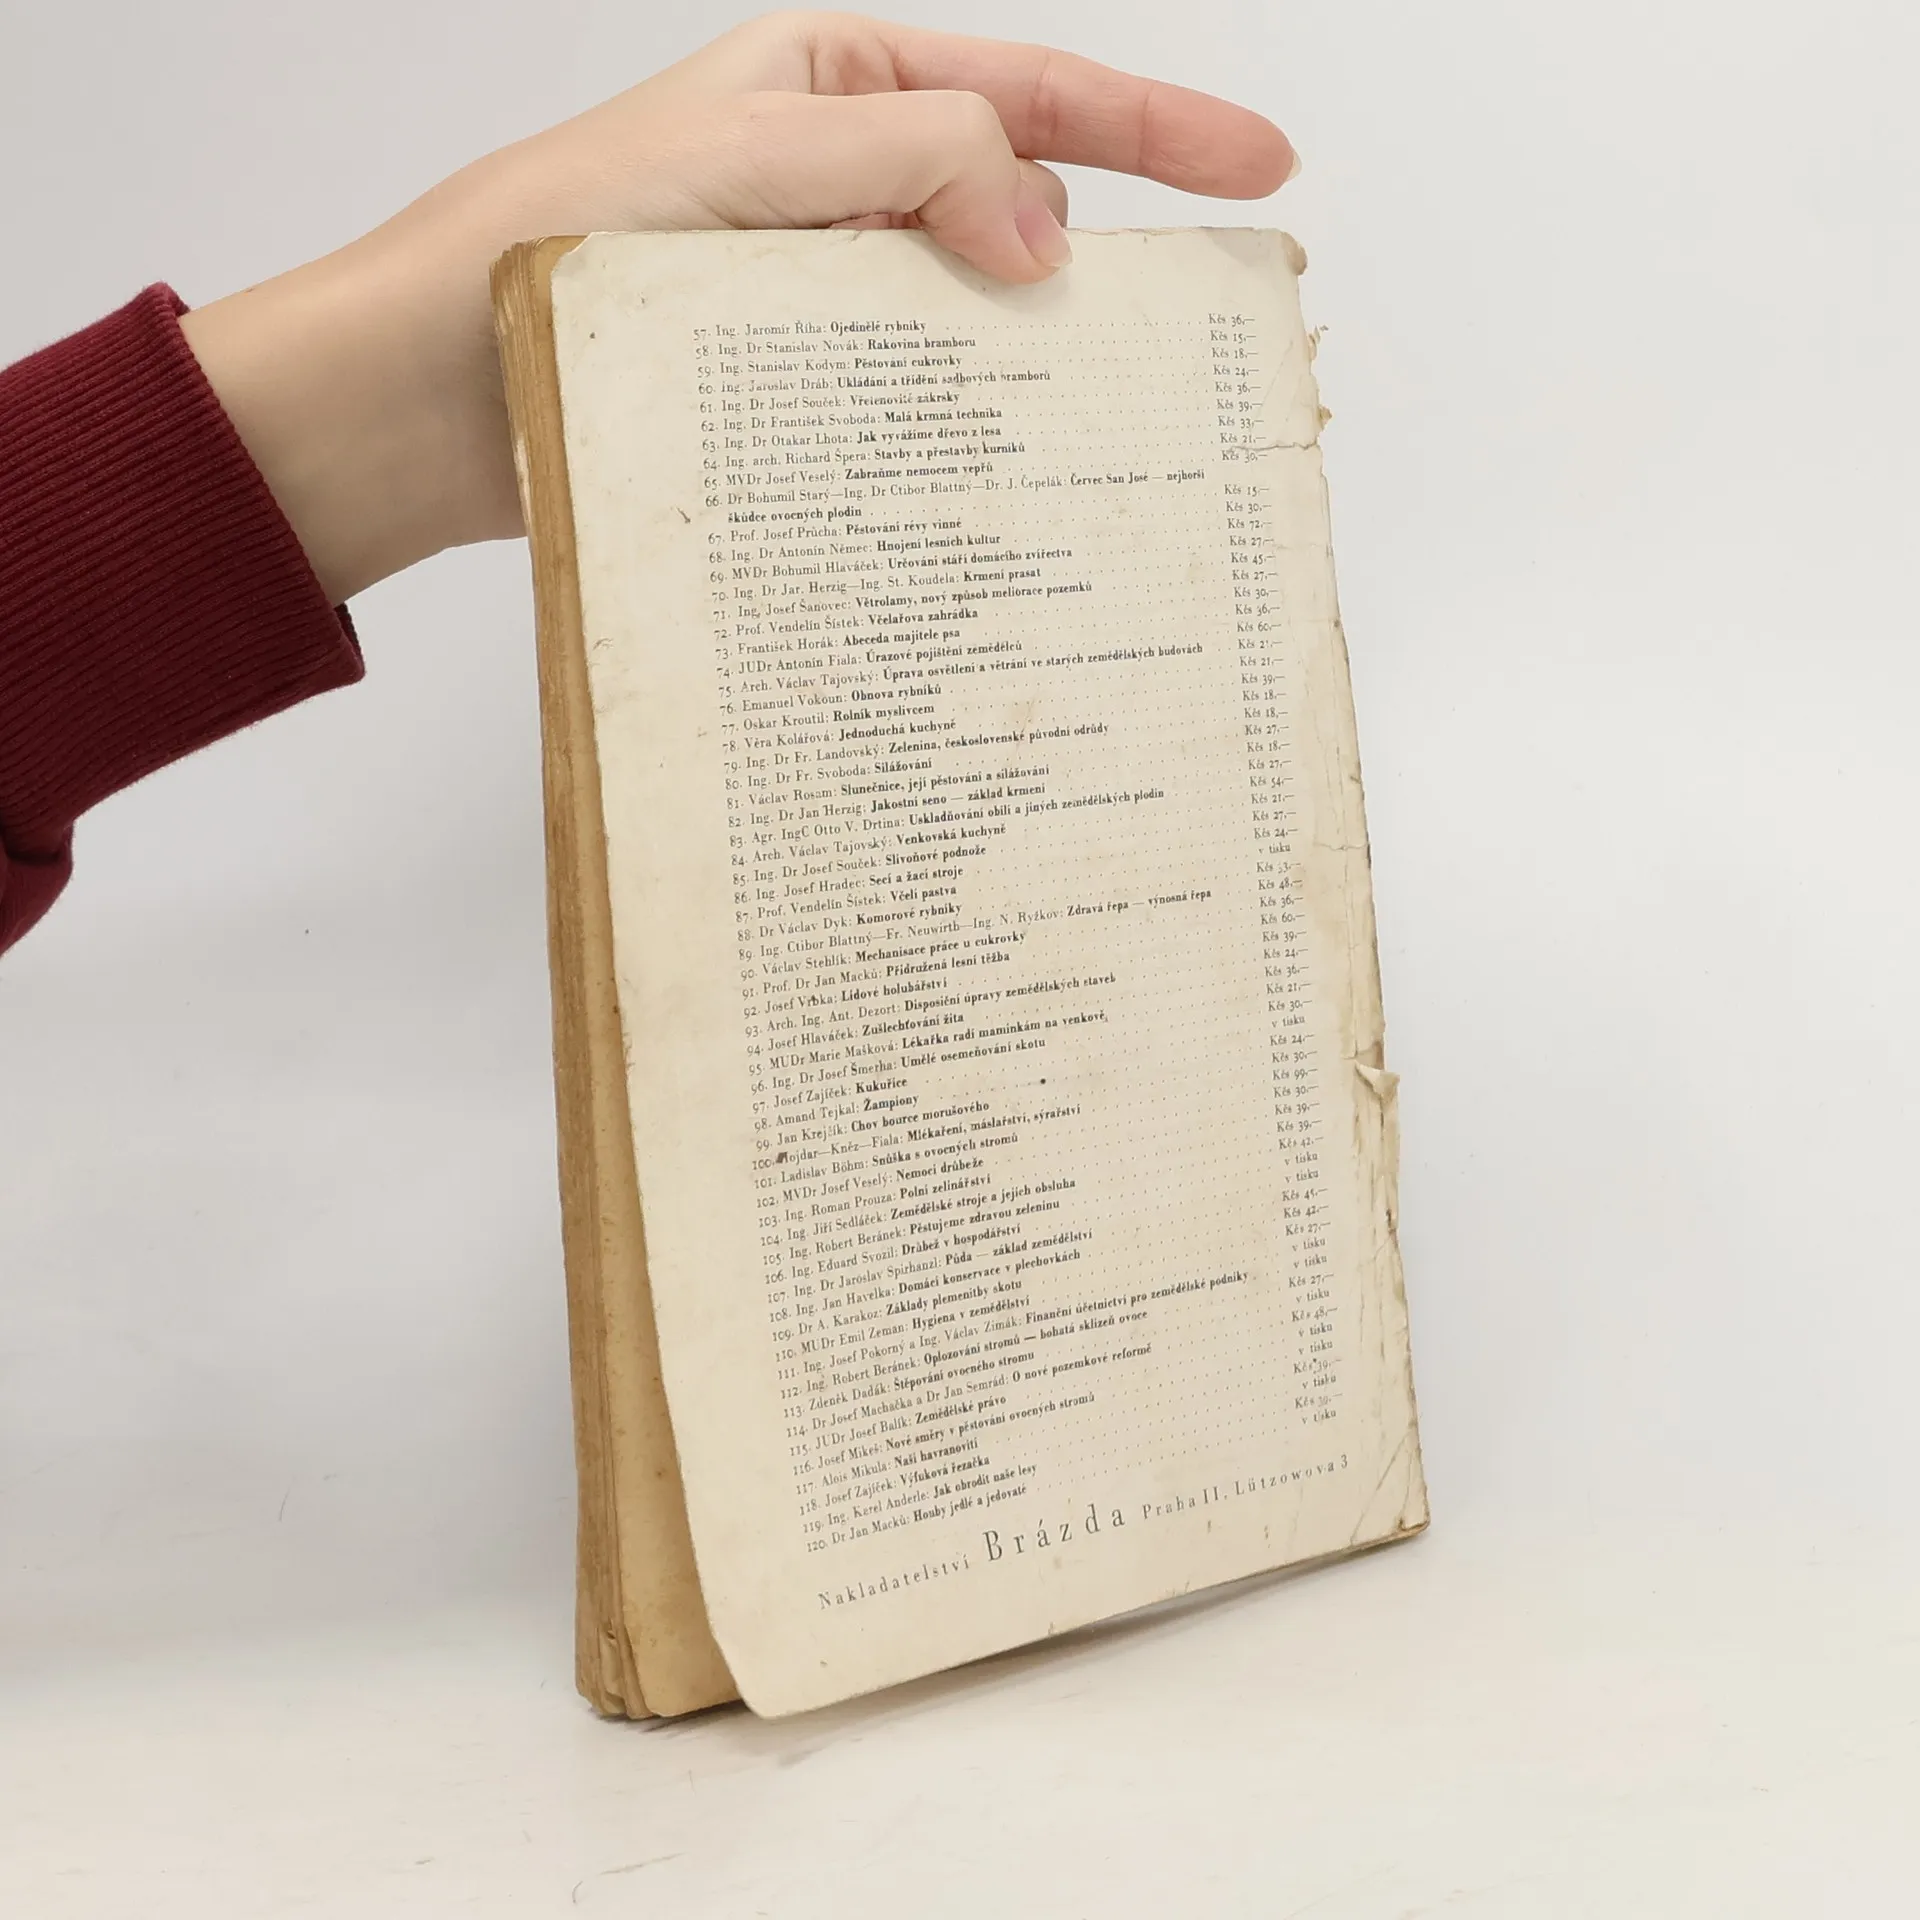 57. Ing. Jaromír Říha: Ojedinělé rybníky . . . Kčs 36,—
58. Ing. Dr Stanislav Novák: Rakovina bramboru . . . Kčs 15,—
59. Ing. Stanislav Kodym: Pěstování cukrovky . . . Kčs 18,—
60. Ing. Jaroslav Dráb: Ukládání a třídění sadbových bramborů . . . Kčs 24,—
61. Ing. Dr Josef Souček: Vřetenovité zákrsky . . . Kčs 36,—
62. Ing. Dr František Svoboda: Malá krmná technika . . . Kčs 39,—
63. Ing. Dr Otakar Lhota: Jak vyvážíme dřevo z lesa . . . Kčs 33,—
64. Ing. arch. Richard Špera: Stavby a přestavby kurníků . . . Kčs 21,—
65. MVDr Josef Veselý: Zabraňme nemocem vepřů . . . Kčs 30,—
66. Dr Bohumil Starý—Ing. Dr Ctibor Blattný—Dr. J. Čepelák: Červec San José — nejhorší
škůdce ovocných plodin . . . Kčs 15,—
67. Prof. Josef Průcha: Pěstování révy vinné . . . Kčs 30,—
68. Ing. Dr Antonín Němec: Hnojení lesních kultur . . . Kčs 72,—
69. MVDr Bohumil Hlaváček: Určování stáří domácího zvířectva . . . Kčs 27,—
70. Ing. Dr Jar. Herzig—Ing. St. Koudela: Krmení prasat . . . Kčs 45,—
71. Ing. Josef Šanovec: Větrolamy, nový způsob meliorace pozemků . . . Kčs 27,—
72. Prof. Vendelín Šístek: Včelařova zahrádka . . . Kčs 30,—
73. František Horák: Abeceda majitele psa . . . Kčs 36,—
74. JUDr Antonín Fiala: Úrazové pojištění zemědělců . . . Kčs 60,—
75. Arch. Václav Tajovský: Úprava osvětlení a větrání ve starých zemědělských budovách . . . Kčs
76. Emanuel Vokoun: Obnova rybníků . . . Kčs 21,—
77. Oskar Kroutil: Rolník myslivcem . . . Kčs 39,—
78. Věra Kolářová: Jednoduchá kuchyně . . . Kčs 18,—
79. Ing. Dr Fr. Landovský: Zelenina, československé původní odrůdy . . . Kčs 18,—
80. Ing. Dr Fr. Svoboda: Silážování . . . Kčs 27,—
81. Václav Rosam: Slunečnice, její pěstování a silážování . . . Kčs 18,—
82. Ing. Dr Jan Herzig: Jakostní seno — základ krmení . . . Kčs 27,—
83. Agr. IngC Otto V. Drtina: Uskladňování obilí a jiných zemědělských plodin . . . Kčs 54,—
84. Arch. Václav Tajovský: Venkovská kuchyně . . . Kčs 21,—
85. Ing. Dr Josef Souček: Slivoňové podnože . . . Kčs 27,—
86. Ing. Josef Hradec: Secí a žací stroje . . . Kčs 24,—
87. Prof. Vendelín Šístek: Včelí pastva . . . v tisku
88. Dr Václav Dyk: Komorové rybníky . . . Kčs 33,—
89. Ing. Ctibor Blattný—Fr. Neuwirth—Ing. N. Ryžkov: Zdravá řepa — výnosná řepa . . . Kčs 48,—
90. Václav Stehlík: Mechanisace práce u cukrovky . . . Kčs 36,—
91. Prof. Dr Jan Macků: Přidružená lesní těžba . . . Kčs 60,—
92. Josef Vrbka: Lidové holubářství . . . Kčs 39,—
93. Arch. Ing. Ant. Dezort: Disposiční úpravy zemědělských staveb . . . Kčs 24,—
94. Josef Hlaváček: Zušlechťování žita . . . Kčs 36,—
95. MUDr Marie Mašková: Lékařka radí maminkám na venkově . . . Kčs 21,—
96. Ing. Dr Josef Šmerha: Umělé osemeňování skotu . . . Kčs 30,—
97. Josef Zajíček: Kukuřice . . . v tisku
98. Amand Tejkal: Žampiony . . . Kčs 24,—
99. Jan Krejčík: Chov bource morušového . . . Kčs 30,—
100. Mojdar—Kněz—Fiala: Mlékaření, máslařství, sýrařství . . . Kčs 99,—
101. Ladislav Böhm: Snůška s ovocných stromů . . . Kčs 30,—
102. MVDr Josef Veselý: Nemoci drůbeže . . . Kčs 39,—
103. Ing. Roman Prouza: Polní zelinářství . . . Kčs 39,—
104. Ing. Jiří Sedláček: Zemědělské stroje a jejich obsluha . . . Kčs 42,—
105. Ing. Robert Beránek: Pěstujeme zdravou zeleninu . . . v tisku
106. Ing. Eduard Svozil: Drůbež v hospodářství . . . v tisku
107. Ing. Dr Jaroslav Spirhanzl: Půda — základ zemědělství . . . Kčs 45,—
108. Ing. Jan Havelka: Domácí konservace v plechovkách . . . Kčs 42,—
109. Dr A. Karakoz: Základy plemenitby skotu . . . Kčs 27,—
110. MUDr Emil Zeman: Hygiena v zemědělství . . . v tisku
111. Ing. Josef Pokorný a Ing. Václav Zimák: Finanční účetnictví pro zemědělské podniky . . . v tisku
112. Ing. Robert Beránek: Oplozování stromů — bohatá sklizeň ovoce . . . Kčs 27,—
113. Zdeněk Dadák: Štěpování ovocného stromu . . . v tisku
114. Dr Josef Machačka a Dr Jan Semrád: O nové pozemkové reformě . . . Kčs 48,—
115. JUDr Josef Balík: Zemědělské právo . . . v tisku
116. Josef Mikeš: Nové směry v pěstování ovocných stromů . . . v tisku
117. Alois Mikula: Naši havranovití . . . Kčs 39,—
118. Josef Zajíček: Výfuková řezačka . . . v tisku
119. Ing. Karel Anderle: Jak obrodit naše lesy . . . Kčs 39,—
120. Dr Jan Macků: Houby jedlé a jedovaté . . . v tisku
Nakladatelství Brázda Praha II, Lützowova 3